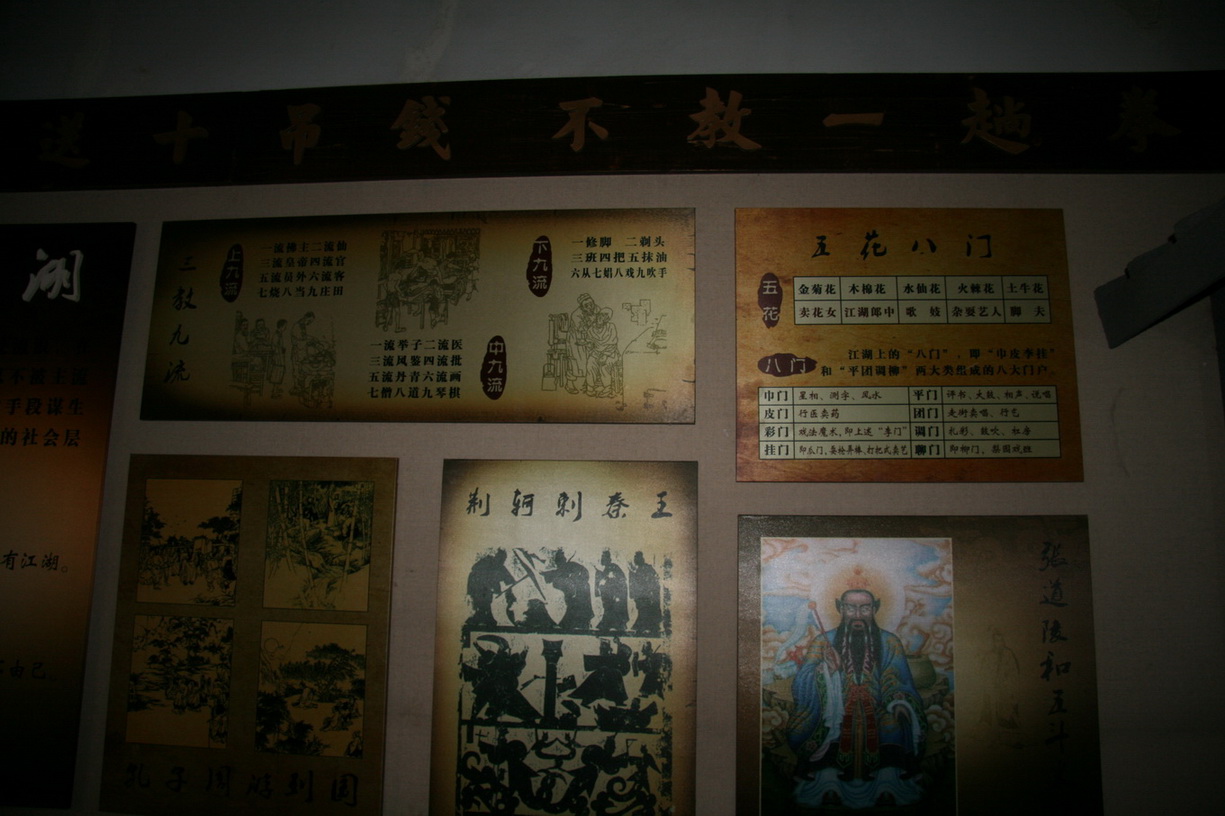 送十吊钱不教一趟拳
湖
手段谋生
的社会层
有江湖。
由己。
三教九流
上九流
一流佛主二流仙
三流皇帝四流官
五流员外六流客
七烧八当九庄田
中九流
一流举子二流医
三流风鉴四流批
五流丹青六流画
七僧八道九琴棋
下九流
一修脚 二剃头
三班四把五抹油
六从七娼八戏九吹手
五花八门
五花
金菊花 木棉花 水仙花 火棘花 土牛花
卖花女 江湖郎中 歌妓 杂耍艺人 脚夫
八门
江湖上的“八门”，即“巾皮李挂”
和“平团调柳”两大类组成的八大门户。
巾门 星相、测字、风水 平门 评书、大鼓、相声、说唱
皮门 行医卖药 团门 走街卖唱、行乞
彩门 戏法魔术，即上述“李门” 调门 扎彩、鼓吹、杠房
挂门 即瓜门，耍枪弄棒、打把式卖艺 聊门 即柳门、梨园戏班
孔子周游列国
荆轲刺秦王
张道陵和五斗